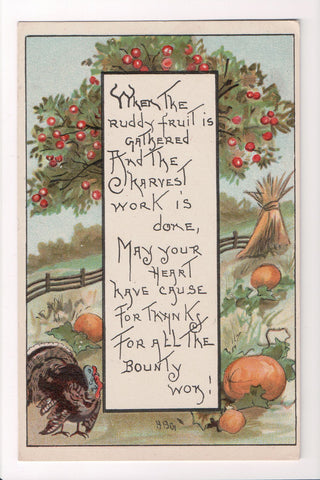 When the
ruddy fruit is
gathered
And the
Harvest
work is
done,
May your
heart
have cause
for thanks
For all the
bounty
won!